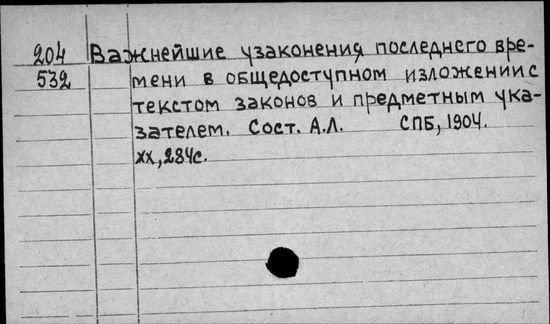 204 Важнейшие узаконения последнего вре-
532 мени в общедоступном изложении с
текстом законов и предметным ука-
зателем. Сост. А.Л. СПБ, 1904.
XX, 284с.